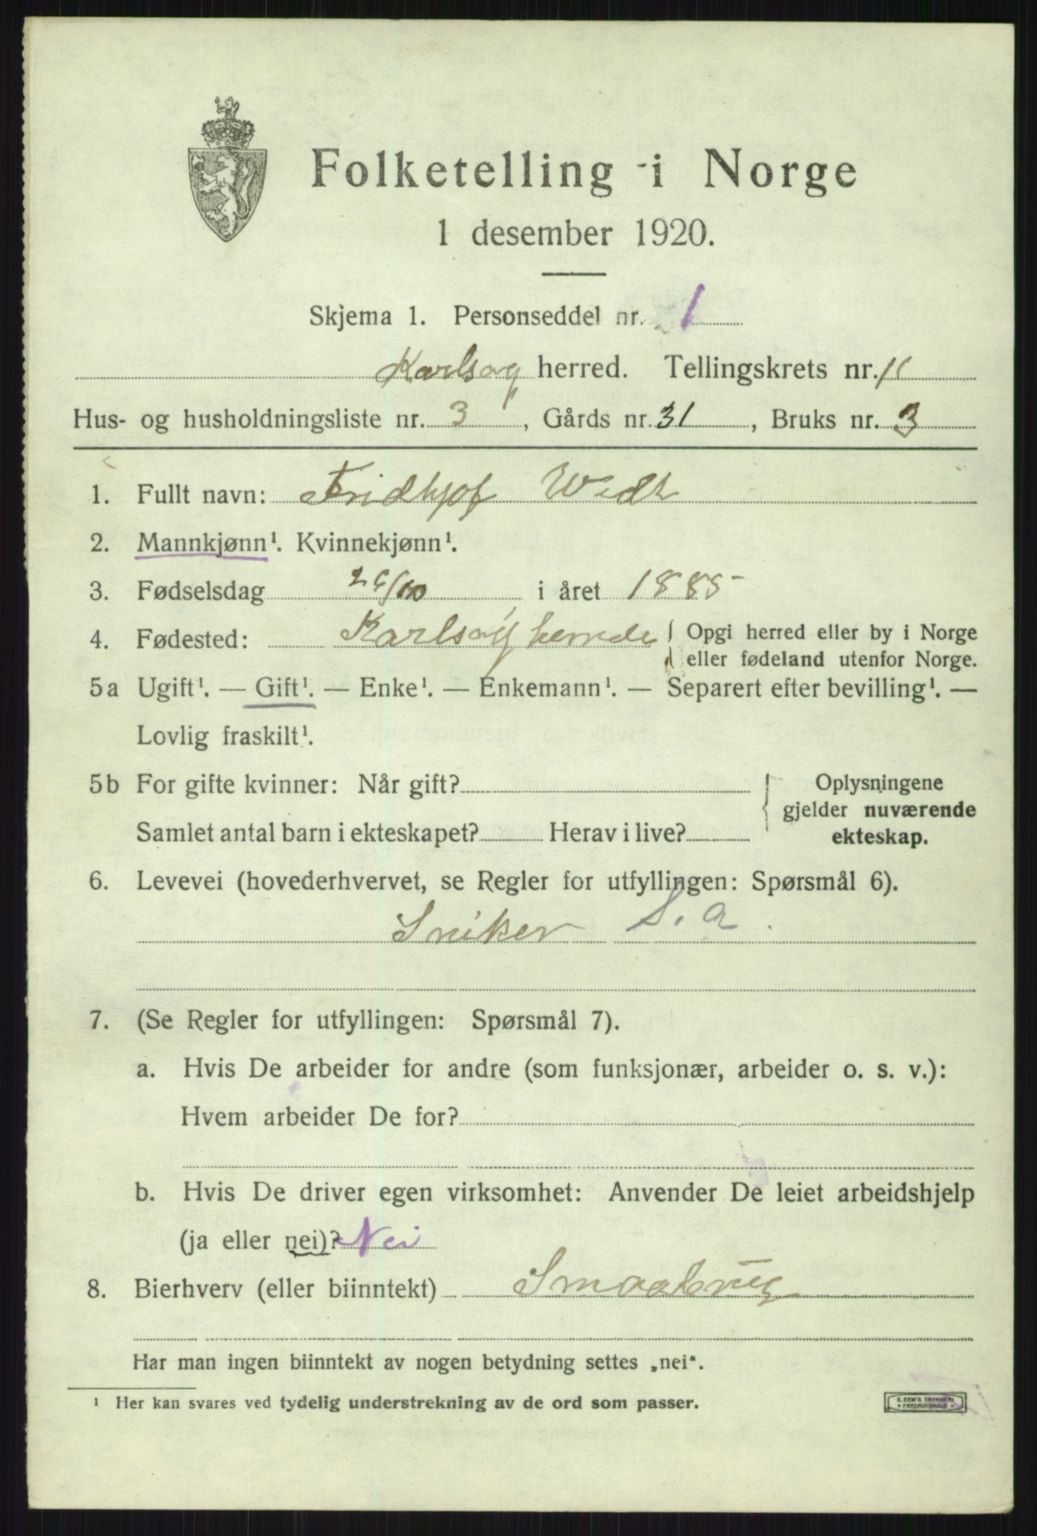 Folketelling i Norge
1 desember 1920.
Skjema 1. Personseddel nr. 1
Karlsøy herred. Tellingskrets nr. 11
Hus- og husholdningsliste nr. 3, Gårds nr. 31, Bruks nr. 3
1. Fullt navn: Fridhjof Wedt
2. Mannkjønn¹. Kvinnekjønn¹.
3. Fødselsdag 26/10 i året 1885
4. Fødested: Karlsøy herrede { Opgi herred eller by i Norge
eller fødeland utenfor Norge.
5a Ugift¹. — Gift¹. — Enke¹. — Enkemann¹. — Separert efter bevilling¹. —
Lovlig fraskilt¹.
5b For gifte kvinner: Når gift? { Oplysningene
gjelder nuværende
Samlet antal barn i ekteskapet? Herav i live? ekteskap.
6. Levevei (hovederhvervet, se Regler for utfyllingen: Spørsmål 6).
Sniker S. a.
7. (Se Regler for utfyllingen: Spørsmål 7).
a. Hvis De arbeider for andre (som funksjonær, arbeider o. s. v.):
Hvem arbeider De for?
b. Hvis De driver egen virksomhet: Anvender De leiet arbeidshjelp
(ja eller nei)? Nei
8. Bierhverv (eller biinntekt) Smaabrug
Har man ingen biinntekt av nogen betydning settes „nei“.
¹ Her kan svares ved tydelig understrekning av de ord som passer.